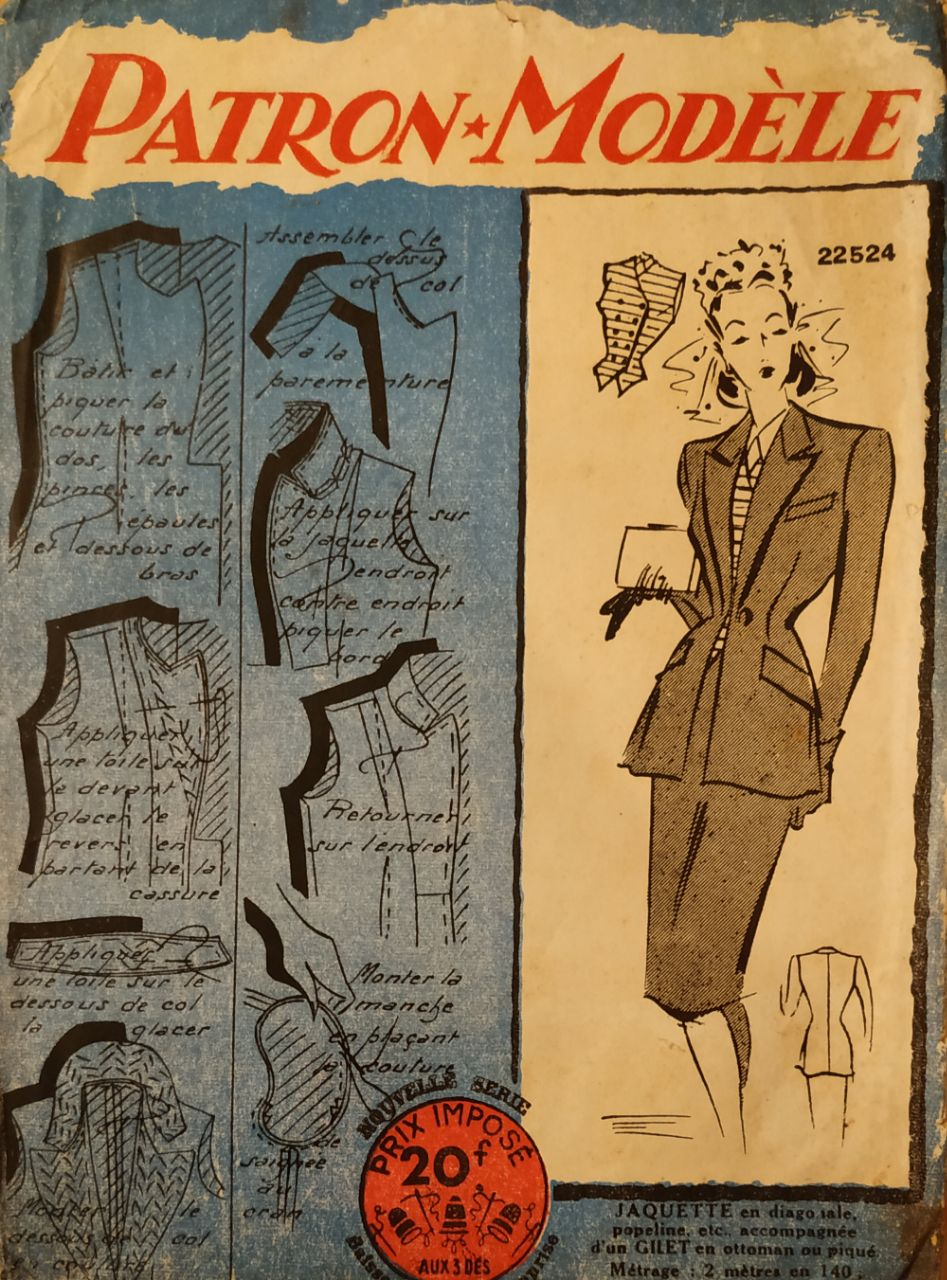 PATRON★MODÈLE
22524
Bâtir et
piquer la
couture du
dos, les
pinces, les
épaules
et dessous de
bras
Appliquer
une toile sur
le devant
glacer le
revers en
partant de la
cassure
Appliquer
une toile sur le
dessous de col
la glacer
Monter le
dessous de col
Assembler le
dessus
de col
à la
parementure
Appliquer sur
la jaquette
endroit
contre endroit
piquer le
bord
Retourner
sur l'endroit
Monter la
manche
en plaçant
la couture
de
saignée
au
cran
NOUVELLE SERIE
PRIX IMPOSÉ
20f
AUX 3 DÉS
JAQUETTE en diagonale,
popeline, etc. accompagnée
d'un GILET en ottoman ou piqué.
Métrage : 2 mètres en 140